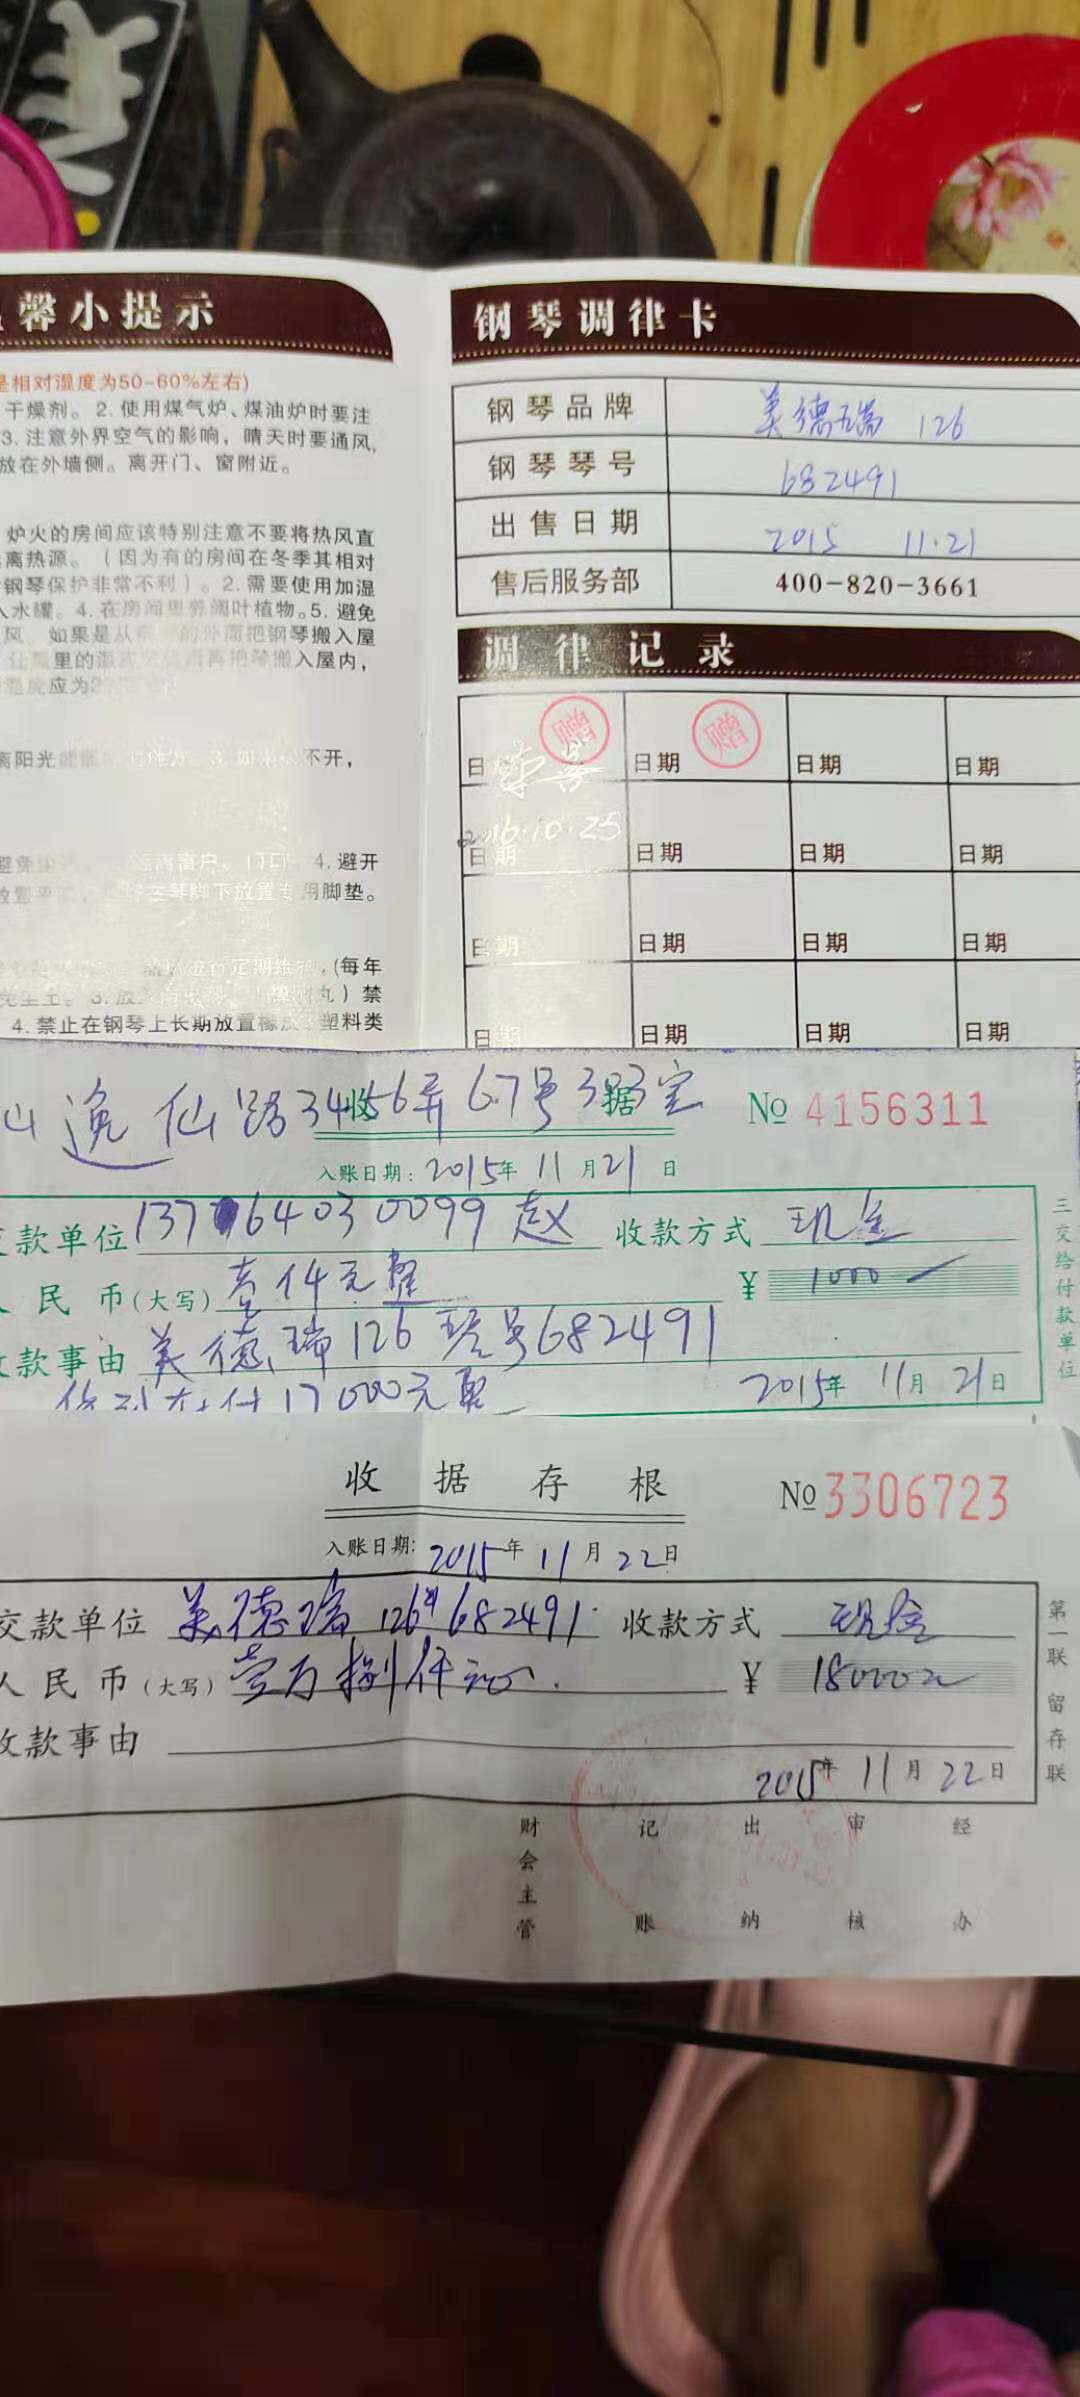 馨小提示
是相对湿度为50-60%左右)
干燥剂。2.使用煤气炉、煤油炉时要注
3.注意外界空气的影响，晴天时要通风，
放在外墙侧。离开门、窗附近。
炉火的房间应该特别注意不要将热风直
离热源。（因为有的房间在冬季其相对
钢琴保护非常不利）。2.需要使用加湿
入水罐。4.在房间里养阔叶植物。5.避免
风，如果是从
的外面把钢琴搬入屋
让
里的温度
再把琴搬入屋内，
温度应为2
离阳光
不开，
4.避开
在琴脚下放置专用脚垫。
定期维
，(每年
丸）禁
4.禁止在钢琴上长期放置橡
塑料类
钢琴调律卡
钢琴品牌 美德瑞 126
钢琴琴号 682491
出售日期 2015 11.21
售后服务部 400-820-3661
调律记录
赠 赠
日期 日期 日期 日期
2016.10.25
日期 日期 日期 日期
日期 日期 日期 日期
日期 日期 日期 日期
山逸仙路3456弄67号303室
收据
No 4156311
入账日期：2015年11月21日
款单位 13764030099 赵 收款方式 现金
人民币(大写) 壹仟元整 ¥ 1000
款事由 美德瑞126 琴号682491
付17000元整 2015年11月21日
三交给付款单位
收据存根
No 3306723
入账日期：2015年11月22日
交款单位 美德瑞 126 682491 收款方式 现金
人民币(大写) 壹万捌仟元 ¥ 18000
收款事由
2015年11月22日
第一联 留存联
财会主管 记账 出纳 审核 经办